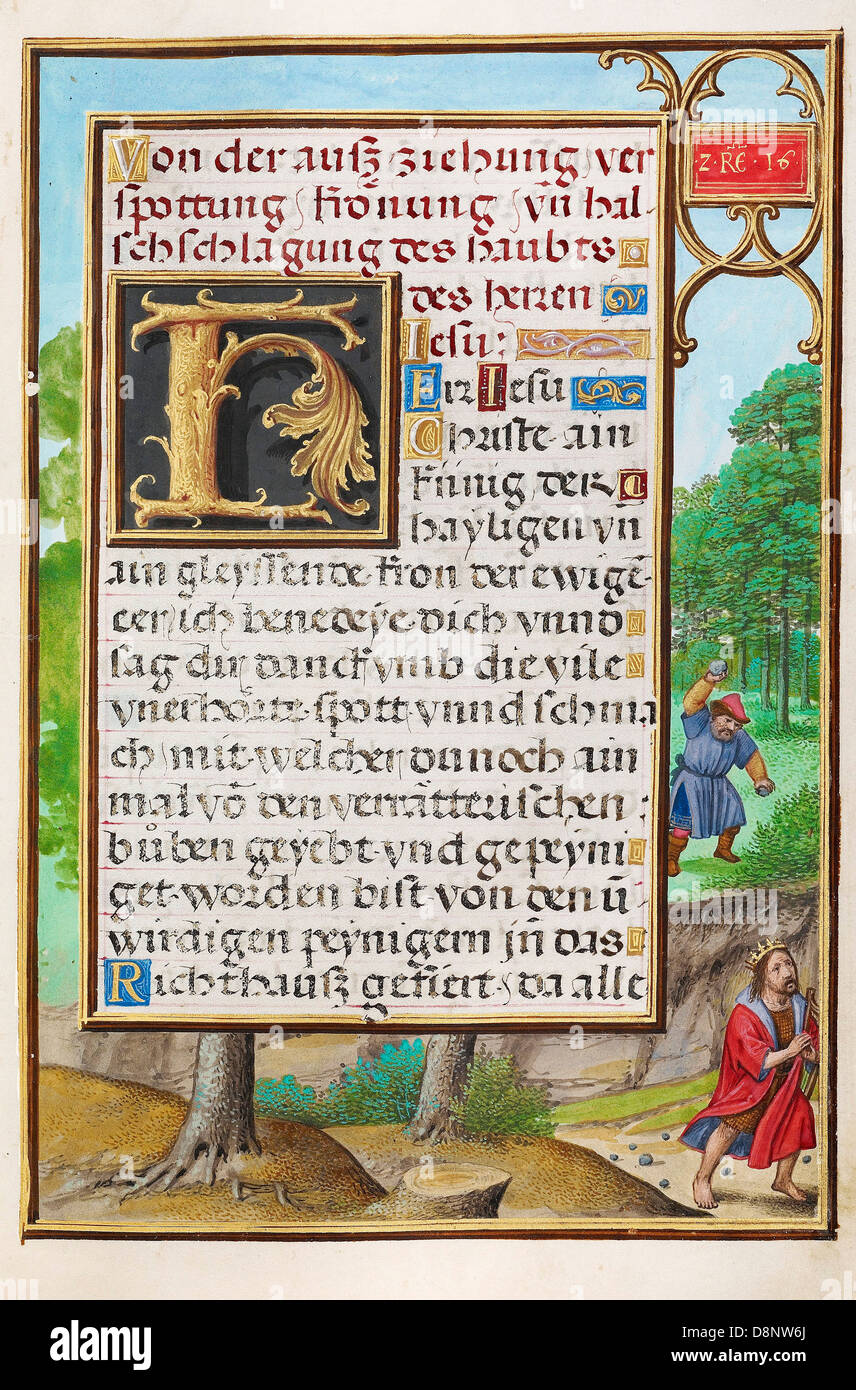 Von der außziehung, ver
spottung, krönung, vñ hal-
schschlagung des haubts
des herren
Iesu:
HEir Iesu
Christe ain
künig der
hayligen vñ
ain gleyssende kron der ewigē
eer, ich benedeye dich vnnd
sag dir danck vmb die vile
vnerhörte spott vnnd schma
ch, mit welcher du noch ain
mal vō den verrätterischen
bůben geyebt vnd gepeyni
get worden bist von den ū
wirdigen peynigern jn das
Richthauß gefiert, da alle
·2·RE·16·
a
alamy
Image ID: D8NW6J
www.alamy.com